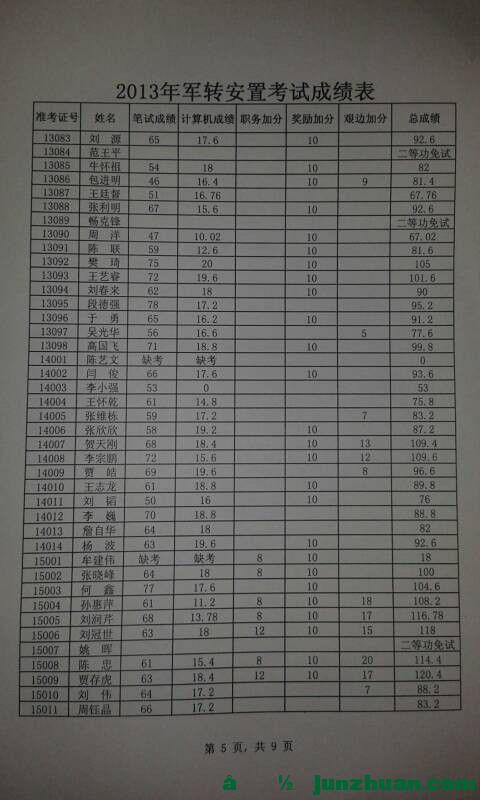 2013年军转安置考试成绩表
准考证号 姓名 笔试成绩 计算机成绩 职务加分 奖励加分 艰边加分 总成绩
13083 刘源 65 17.6 10 92.6
13084 范王平 二等功免试
13085 牛怀祖 54 18 10 82
13086 包进明 46 16.4 10 9 81.4
13087 王廷督 51 16.76 67.76
13088 张利明 67 15.6 10 92.6
13089 畅克锋 二等功免试
13090 周洋 47 10.02 10 67.02
13091 陈联 59 12.6 10 81.6
13092 樊琦 75 20 10 105
13093 王艺睿 72 19.6 10 101.6
13094 刘春来 62 18 10 90
13095 段德强 78 17.2 95.2
13096 于勇 65 16.2 10 91.2
13097 吴光华 56 16.6 5 77.6
13098 高国飞 71 18.8 10 99.8
14001 陈艺文 缺考 缺考 0
14002 闫俊 66 17.6 10 93.6
14003 李小强 53 0 53
14004 王怀乾 61 14.8 75.8
14005 张维栋 59 17.2 7 83.2
14006 张欣欣 58 19.2 10 87.2
14007 贺天刚 68 18.4 10 13 109.4
14008 李宗鹏 72 15.6 10 12 109.6
14009 贾皓 69 19.6 8 96.6
14010 王志龙 61 18.8 10 89.8
14011 刘韬 50 16 10 76
14012 李巍 70 18.8 88.8
14013 詹自华 64 18 82
14014 杨波 63 19.6 10 92.6
15001 牟建伟 缺考 缺考 8 10 18
15002 张晓峰 64 18 8 10 100
15003 何鑫 77 17.6 10 104.6
15004 孙惠萍 61 11.2 8 10 18 108.2
15005 刘润芹 68 13.78 8 10 17 116.78
15006 刘冠世 63 18 12 10 15 118
15007 姚晖 二等功免试
15008 陈忠 61 15.4 8 10 20 114.4
15009 贾存虎 63 18.4 12 10 17 120.4
15010 刘伟 64 17.2 7 88.2
15011 周钰晶 66 17.2 83.2
第 5 页, 共 9 页
â ½ junzhuan.com